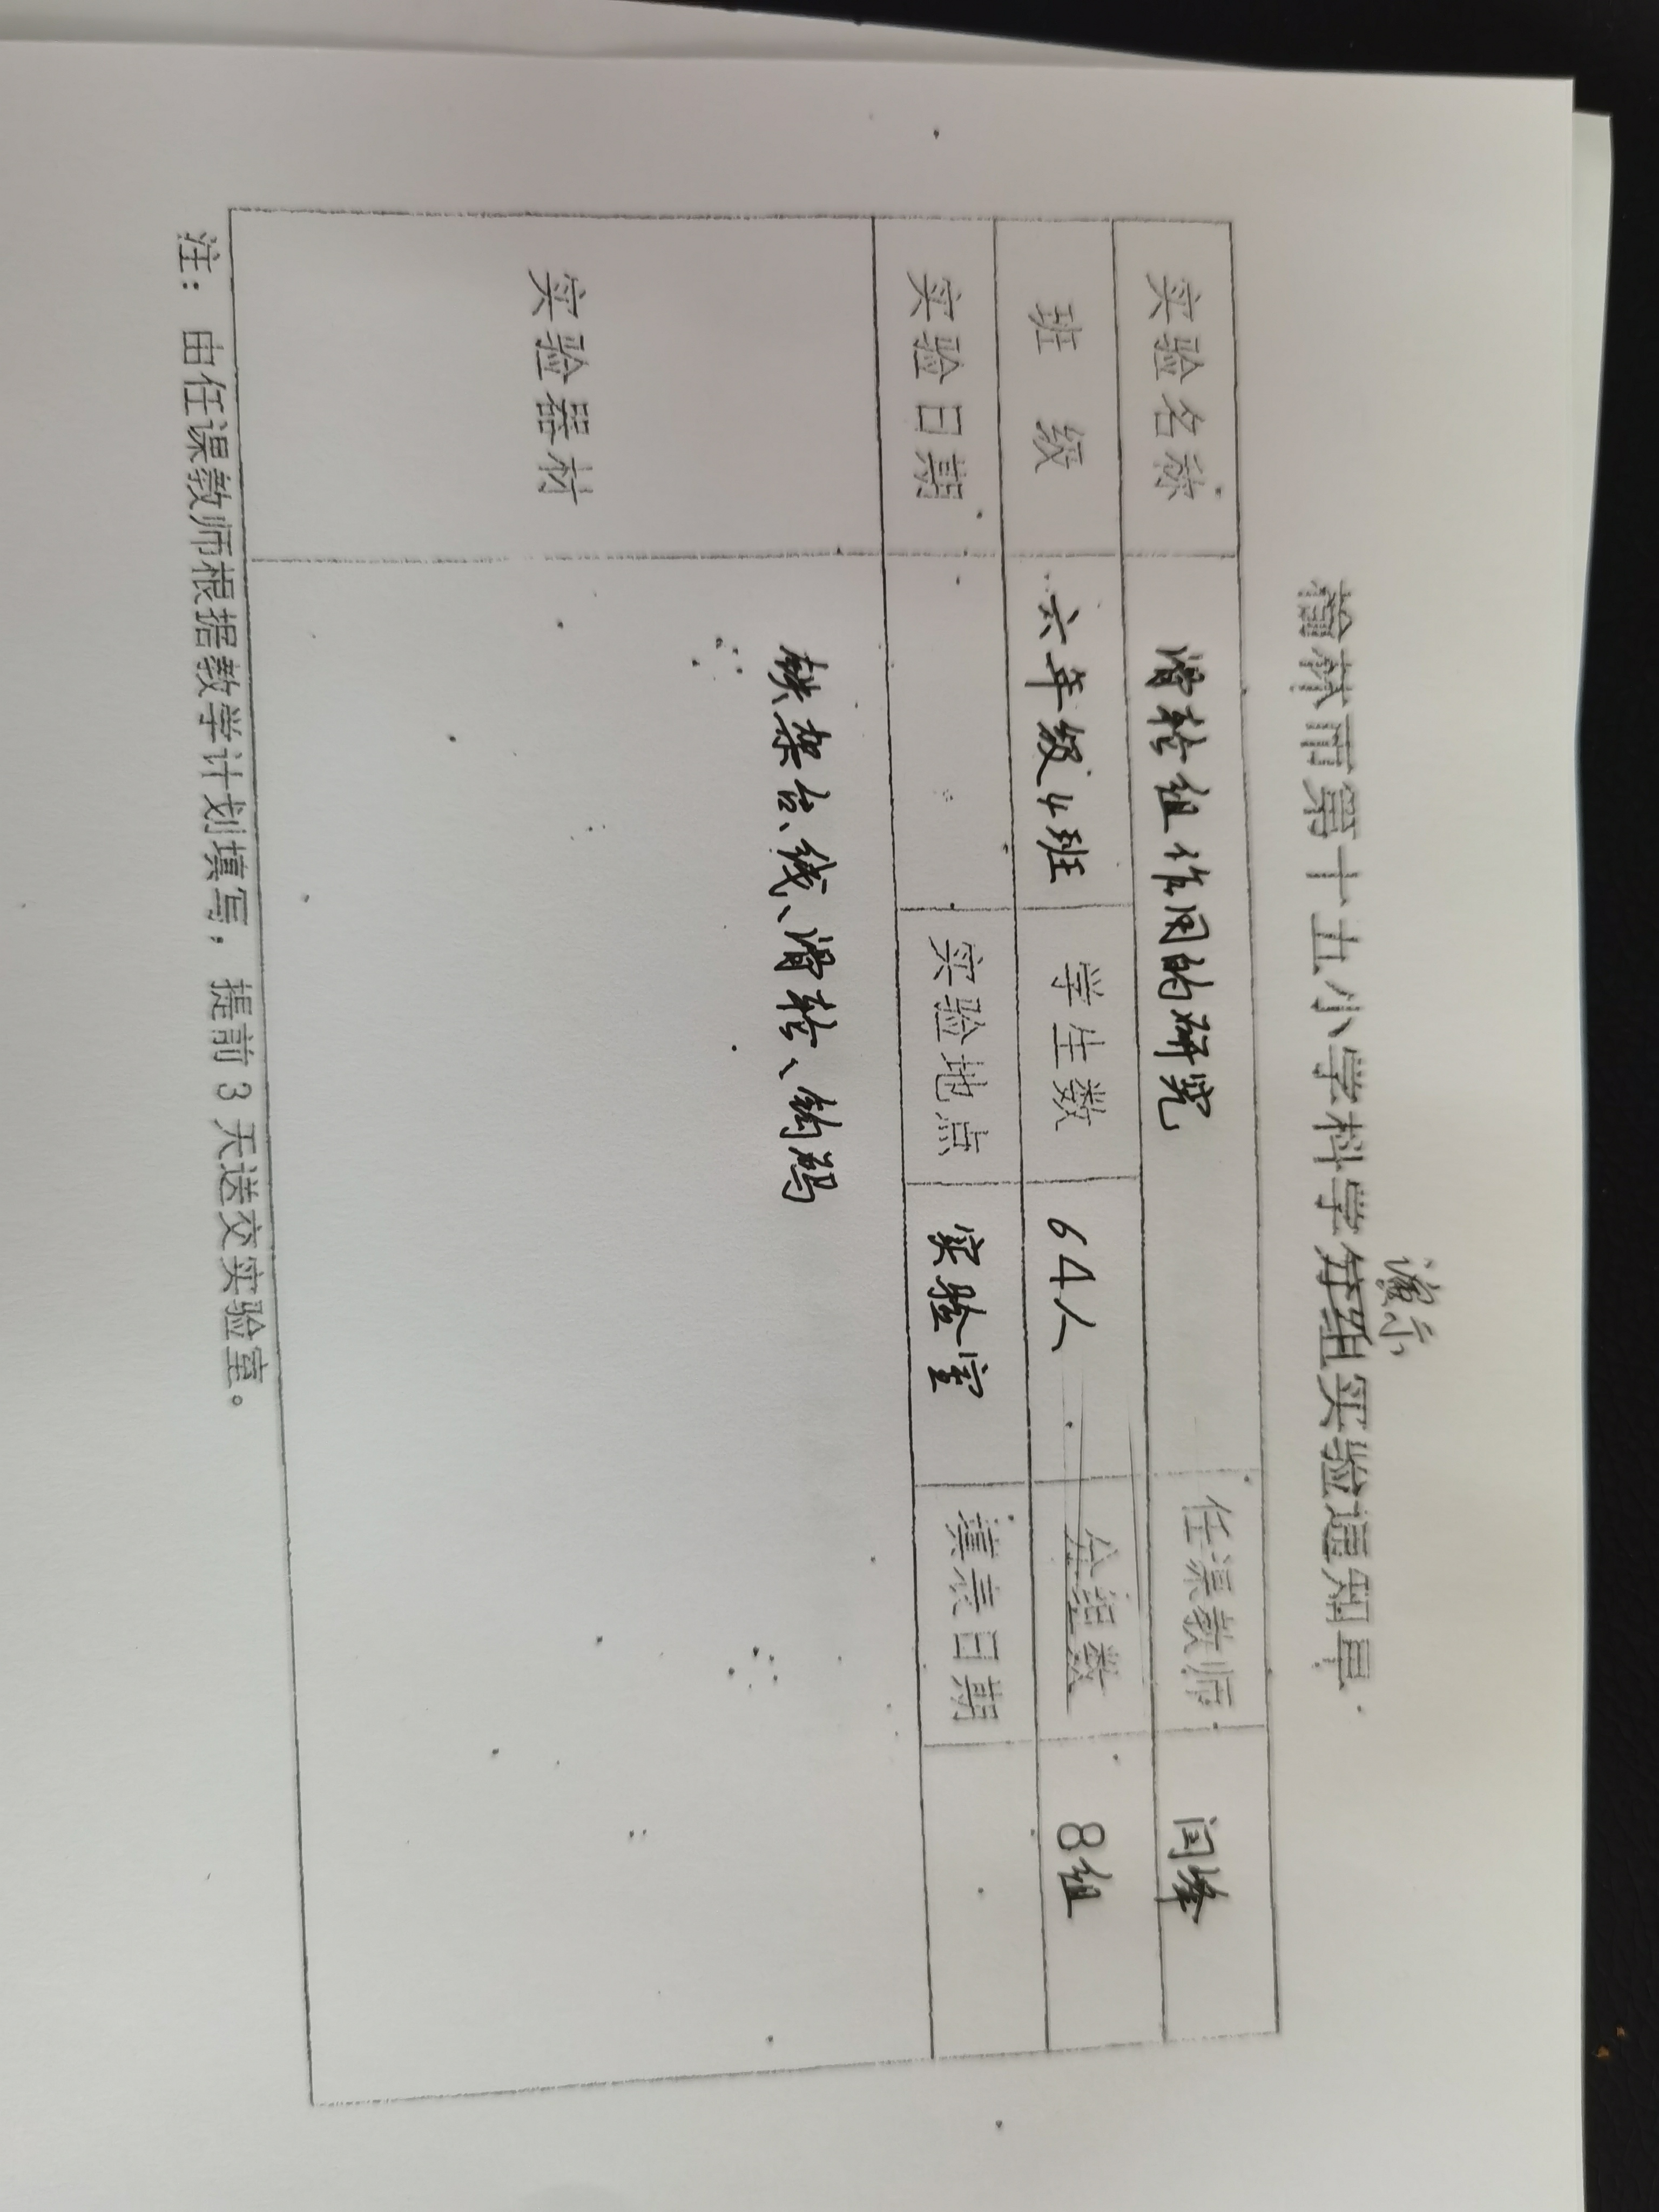 演示
榆林市第十五小学科学分组实验通知单
实验名称 滑轮组作用的研究 任课教师 闫峰
班 级 六年级4班 学生数 64人 分组数 8组
实验日期 实验地点 实验室 填表日期
实验器材 铁架台、线、滑轮、钩码
注：由任课教师根据教学计划填写，提前3天送交实验室。